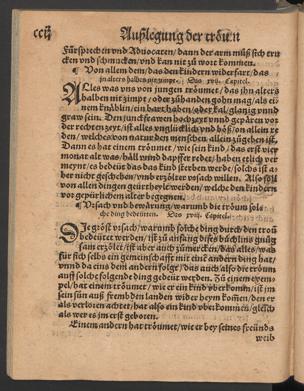 Außlegung der tröum
Fürsprechen vnd Advocaten / dann der arm můß sich tru
cken vnd schmucken / vnd kan nit zů wort kommen.
¶ Von allem dem / das den kindern widerfart / das
jn alters halben nit zimpt. Das xvij. Capitel.
ALles was vns von jungen tröumet / das jhn alters
halben nit zimpt / oder zůhanden gohn mag / als ei
nem knäblin / ein bart haben / oder kal / glantzig vnnd
graw sein. Den junckfrawen hochzyt vnnd gepären vor
der rechten zeyt / ist alles vnglücklich vnd böß / on allein re
den / welches von natur den menschen allein zůgehen ist.
Dann es hat einem tröumet / wie sein kind / das erst vier
monat alt was / häll vnnd dapffer redet / haben etlich ver
meynt / es bedeüt das das kind sterben werde / solchs ist a=
ber nicht geschehen / vnd erzölter vrsach willen. Also söll
von allen dingen geurtheylt werden / welche den kindern
vor gepürlichem alter begegnen.
¶ Vrsach vnd bewärung / warumb die tröum söl=
che ding bedeüten. Das xviij. Capitel.
DJe gröst vrsach / warumb solche ding durch den trou
bedeütet werden / ist zů anfang dises bůchlins gnůg
sam erzölet / ist aber auch zů mercken / das alles / was
für sich selbs ein gemeinschafft mit eim andern ding hat /
vnnd da eins dem andern folgt / das auch also die tröum
auff solche folgende ding bedeüt werden. Zů einem exem=
pel / hat einem tröumet / wie er ein kind vberkom / ist jm
sein sün auß frembden landen wider heym kommen / den er
als verloren achtet / hat also ein kind vberkommen / gleich
als wer es jm erst geboren.
Einem andern hat tröumet / wie er bey seines freünds
weib